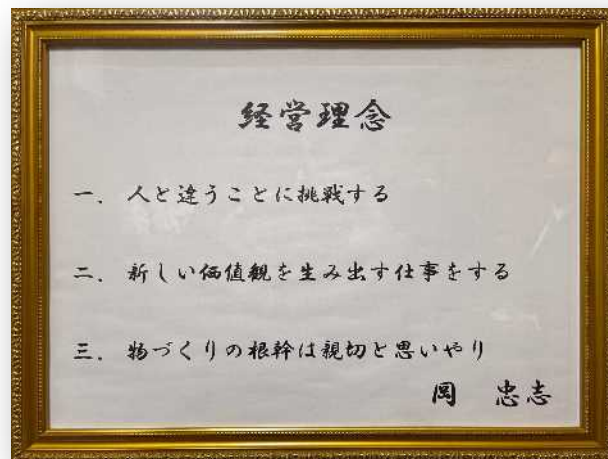 経営理念
一. 人と違うことに挑戦する
二. 新しい価値観を生み出す仕事をする
三. 物づくりの根幹は親切と思いやり
岡 忠志